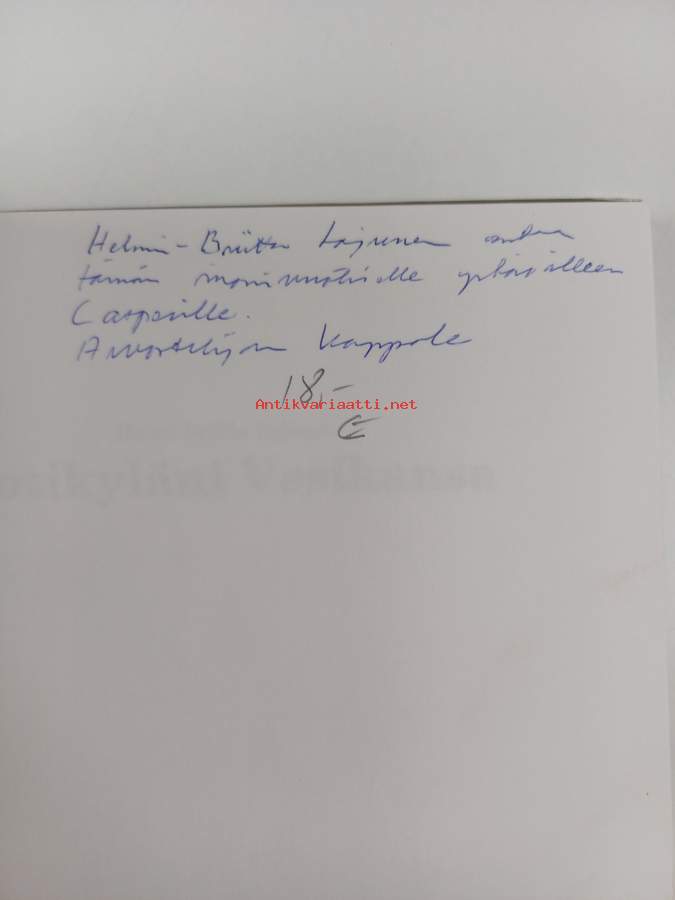 Helmi-Briitta Lajunen antaa
tämän monivuotiselle ystävälleen
Casperille.
Arvostelijan kappale
18,-
Antikvariaatti.net
€
otikyläni Vesikansa